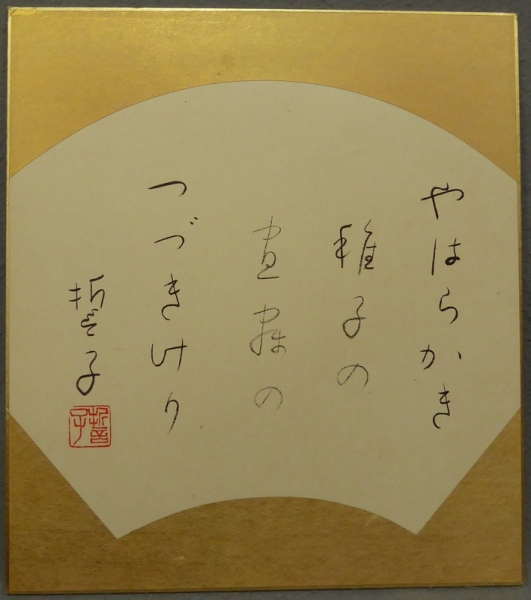 やはらかき
稚子の
昼寐の
つづきけり
哲子
哲子